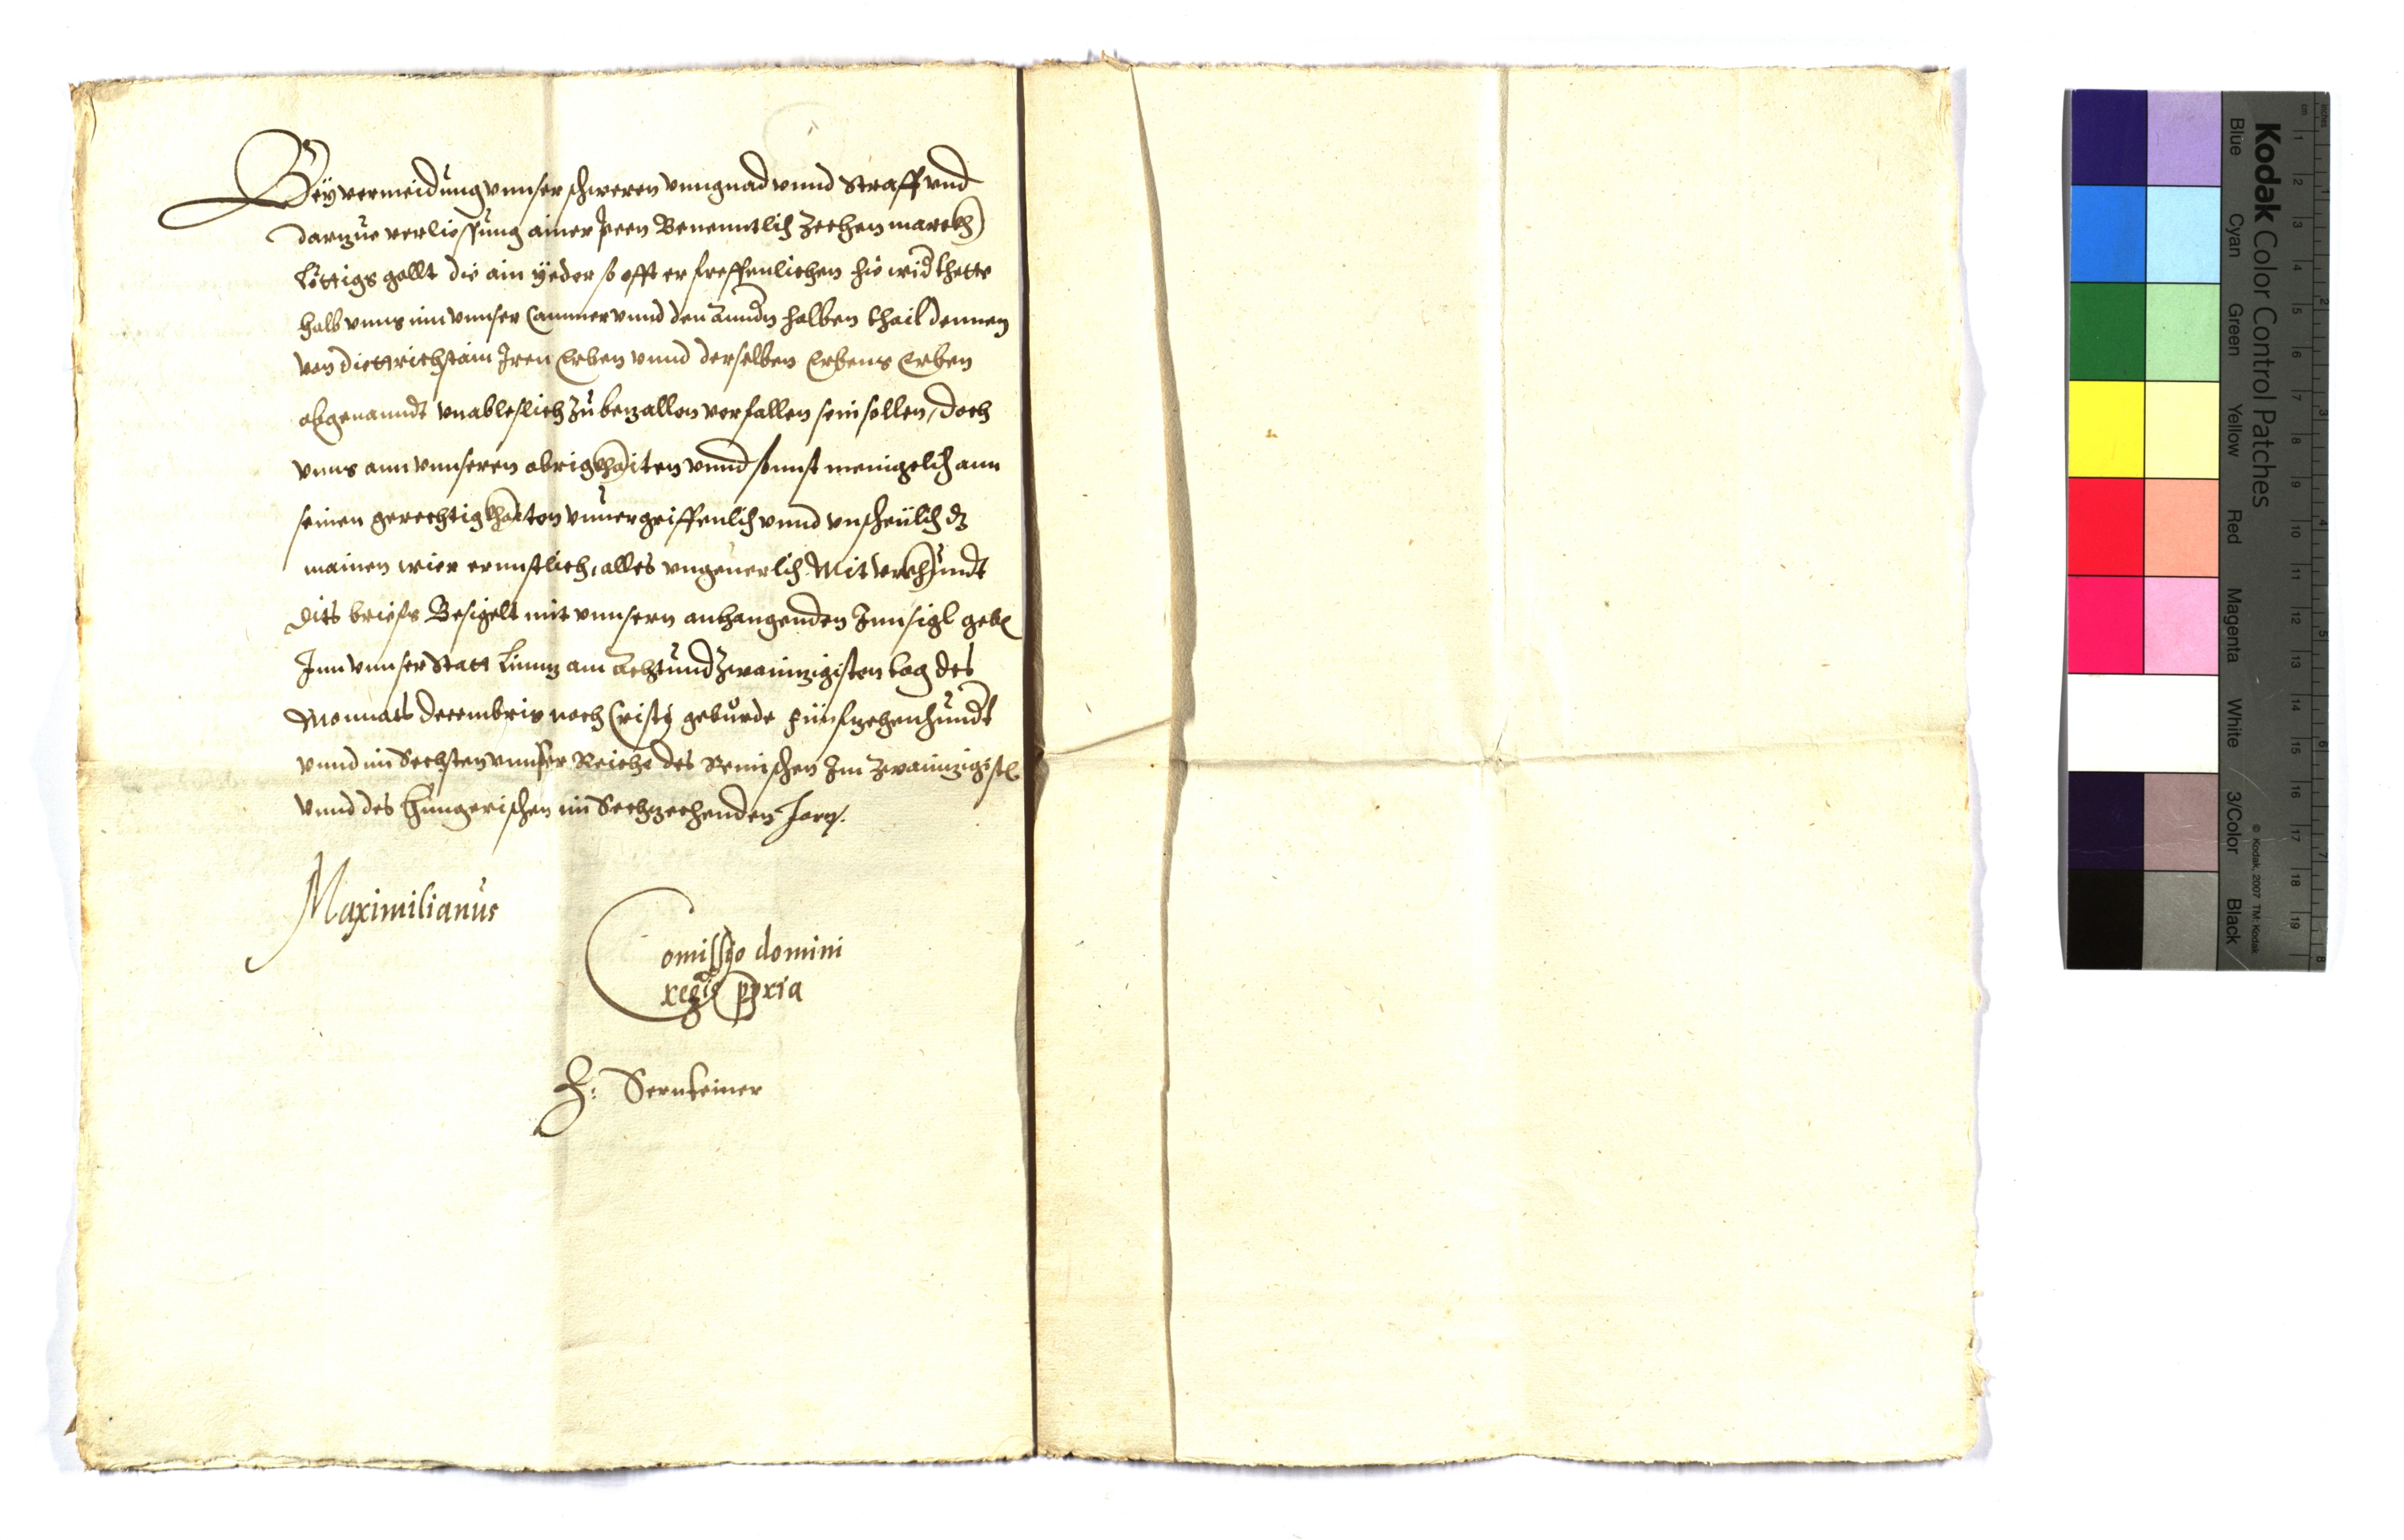 Bey vermeidung vnnser schweren vnngnad vnnd Straff vnd
darzue verliessung ainer peen Benenntlich zechen marckh
Löttigs gollt die ain yeder so offt er freffenlichen hie wid thette
halb vnns inn vnnser Cammer vnnd den Anndn halben thail dennen
von Diettrichstain Iren Erben vnnd derselben Erbens Erben
obgenanndt vnableslich zu bezallen verfallen sein sollen, doch
vnns ann vnnseren obrigkhaiten vnnd sonnst menigelich ann
seinen gerechtigkhaiten vnuergriffenlich vnnd vnscheulich dz
mainen wier ernnstlich, alles vngeuerlich Mit vrkhundt
dits briefs Besigelt mit vnnsern anhangenden Innsigl geben
Inn vnnser Statt Linntz am Achtundzwainzigisten tag des
Monnats decembris nach Cristj geburde Fünfzehenhundt
vnnd im Sechsten vnnser Reiche des Remischen Im zwainzigist
vnnd des Hungerischen im Sechzechenden Jarn.
Maximilianus
Comissio domini
regis ppria
Z: Sernteiner
Kodak Color Control Patches
© Kodak, 2007 TM: Kodak
Blue Cyan Green Yellow Red Magenta White 3/Color Black
inches 1 2 3 4 5 6 7 8
cm 1 2 3 4 5 6 7 8 9 10 11 12 13 14 15 16 17 18 19